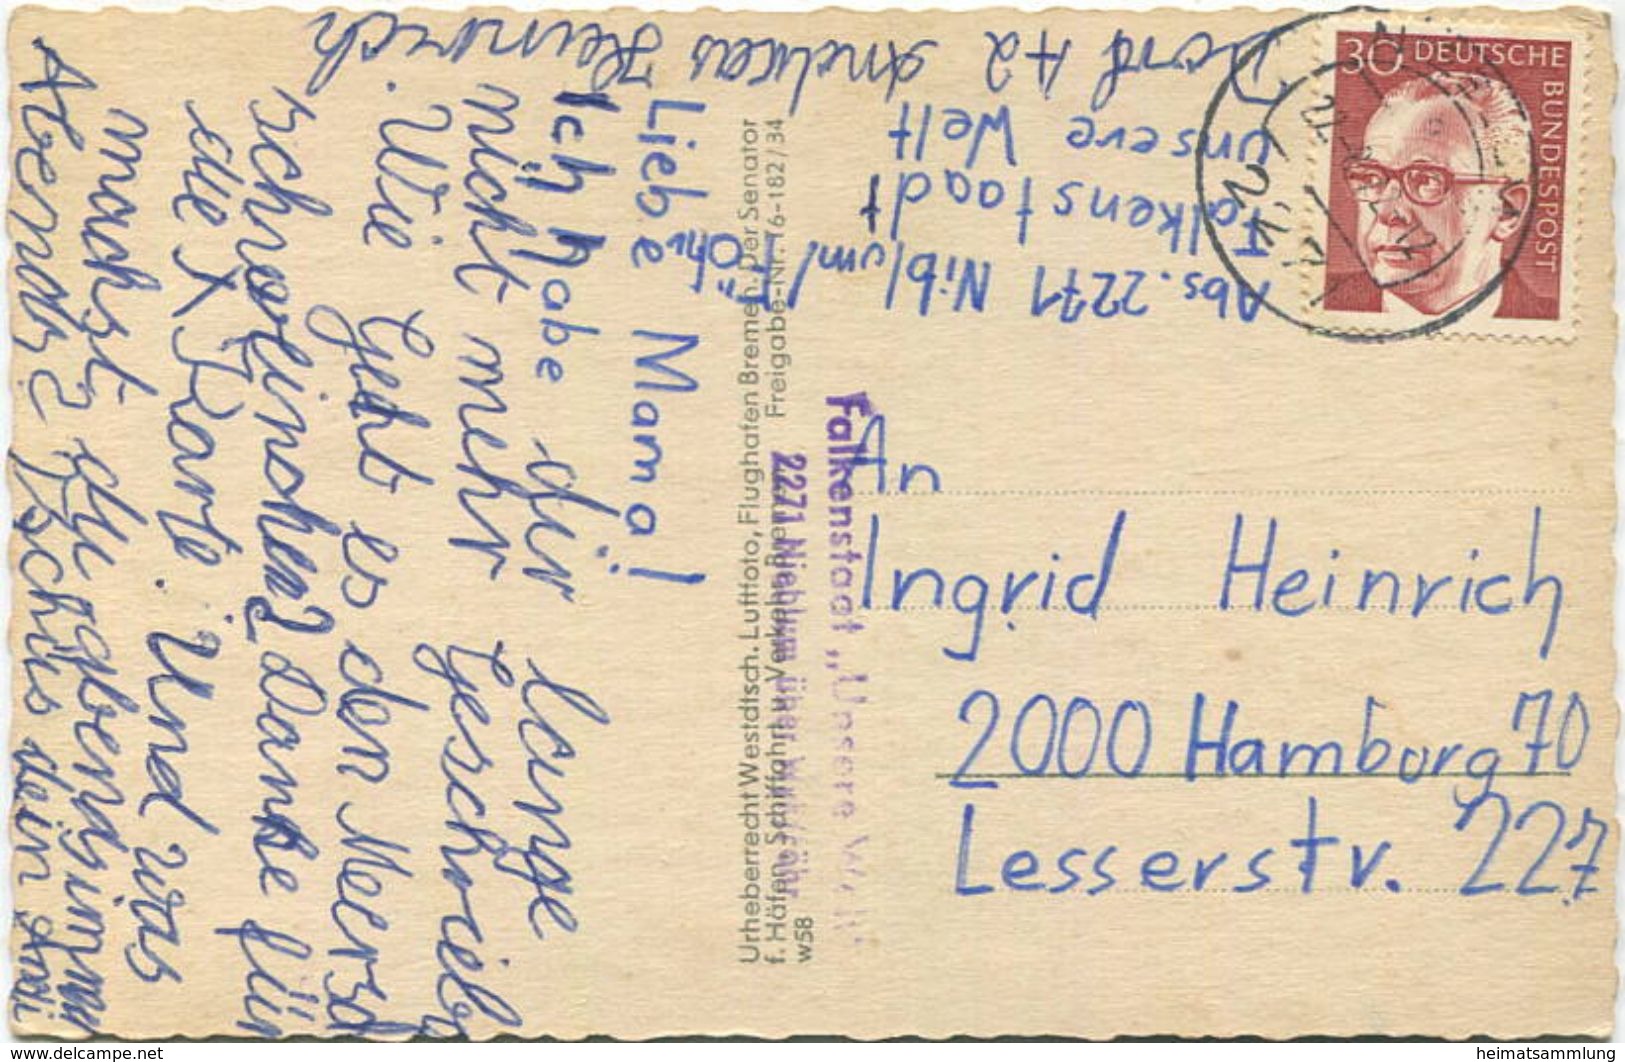 Liebe Mama!
Ich habe dir lange
nicht mehr Geschrieben
. Wie Geht es den Meersch
schweinchen? Danke für
die Karte. Und was
machst du
Abends? Tschüs dein Andi
Dorf 42 Andreas Heinrich
Unsere Welt
Falkenstaadt
Abs. 2271 Niblum/Föhr
30 DEUTSCHE
BUNDESPOST
Urheberrecht Westdtsch. Luftfoto, Flughafen Bremen. Der Senator
f. Häfen, Schiffahrt u. Verkehr Bremen Freigabe-Nr. 76-182/34
w58
Falkenstaat „Unsere Welt"
2271 Nieblum über Wyk/Föhr
An
Ingrid Heinrich
2000 Hamburg 70
Lesserstr. 227
www.delcampe.net
heimatsammlung